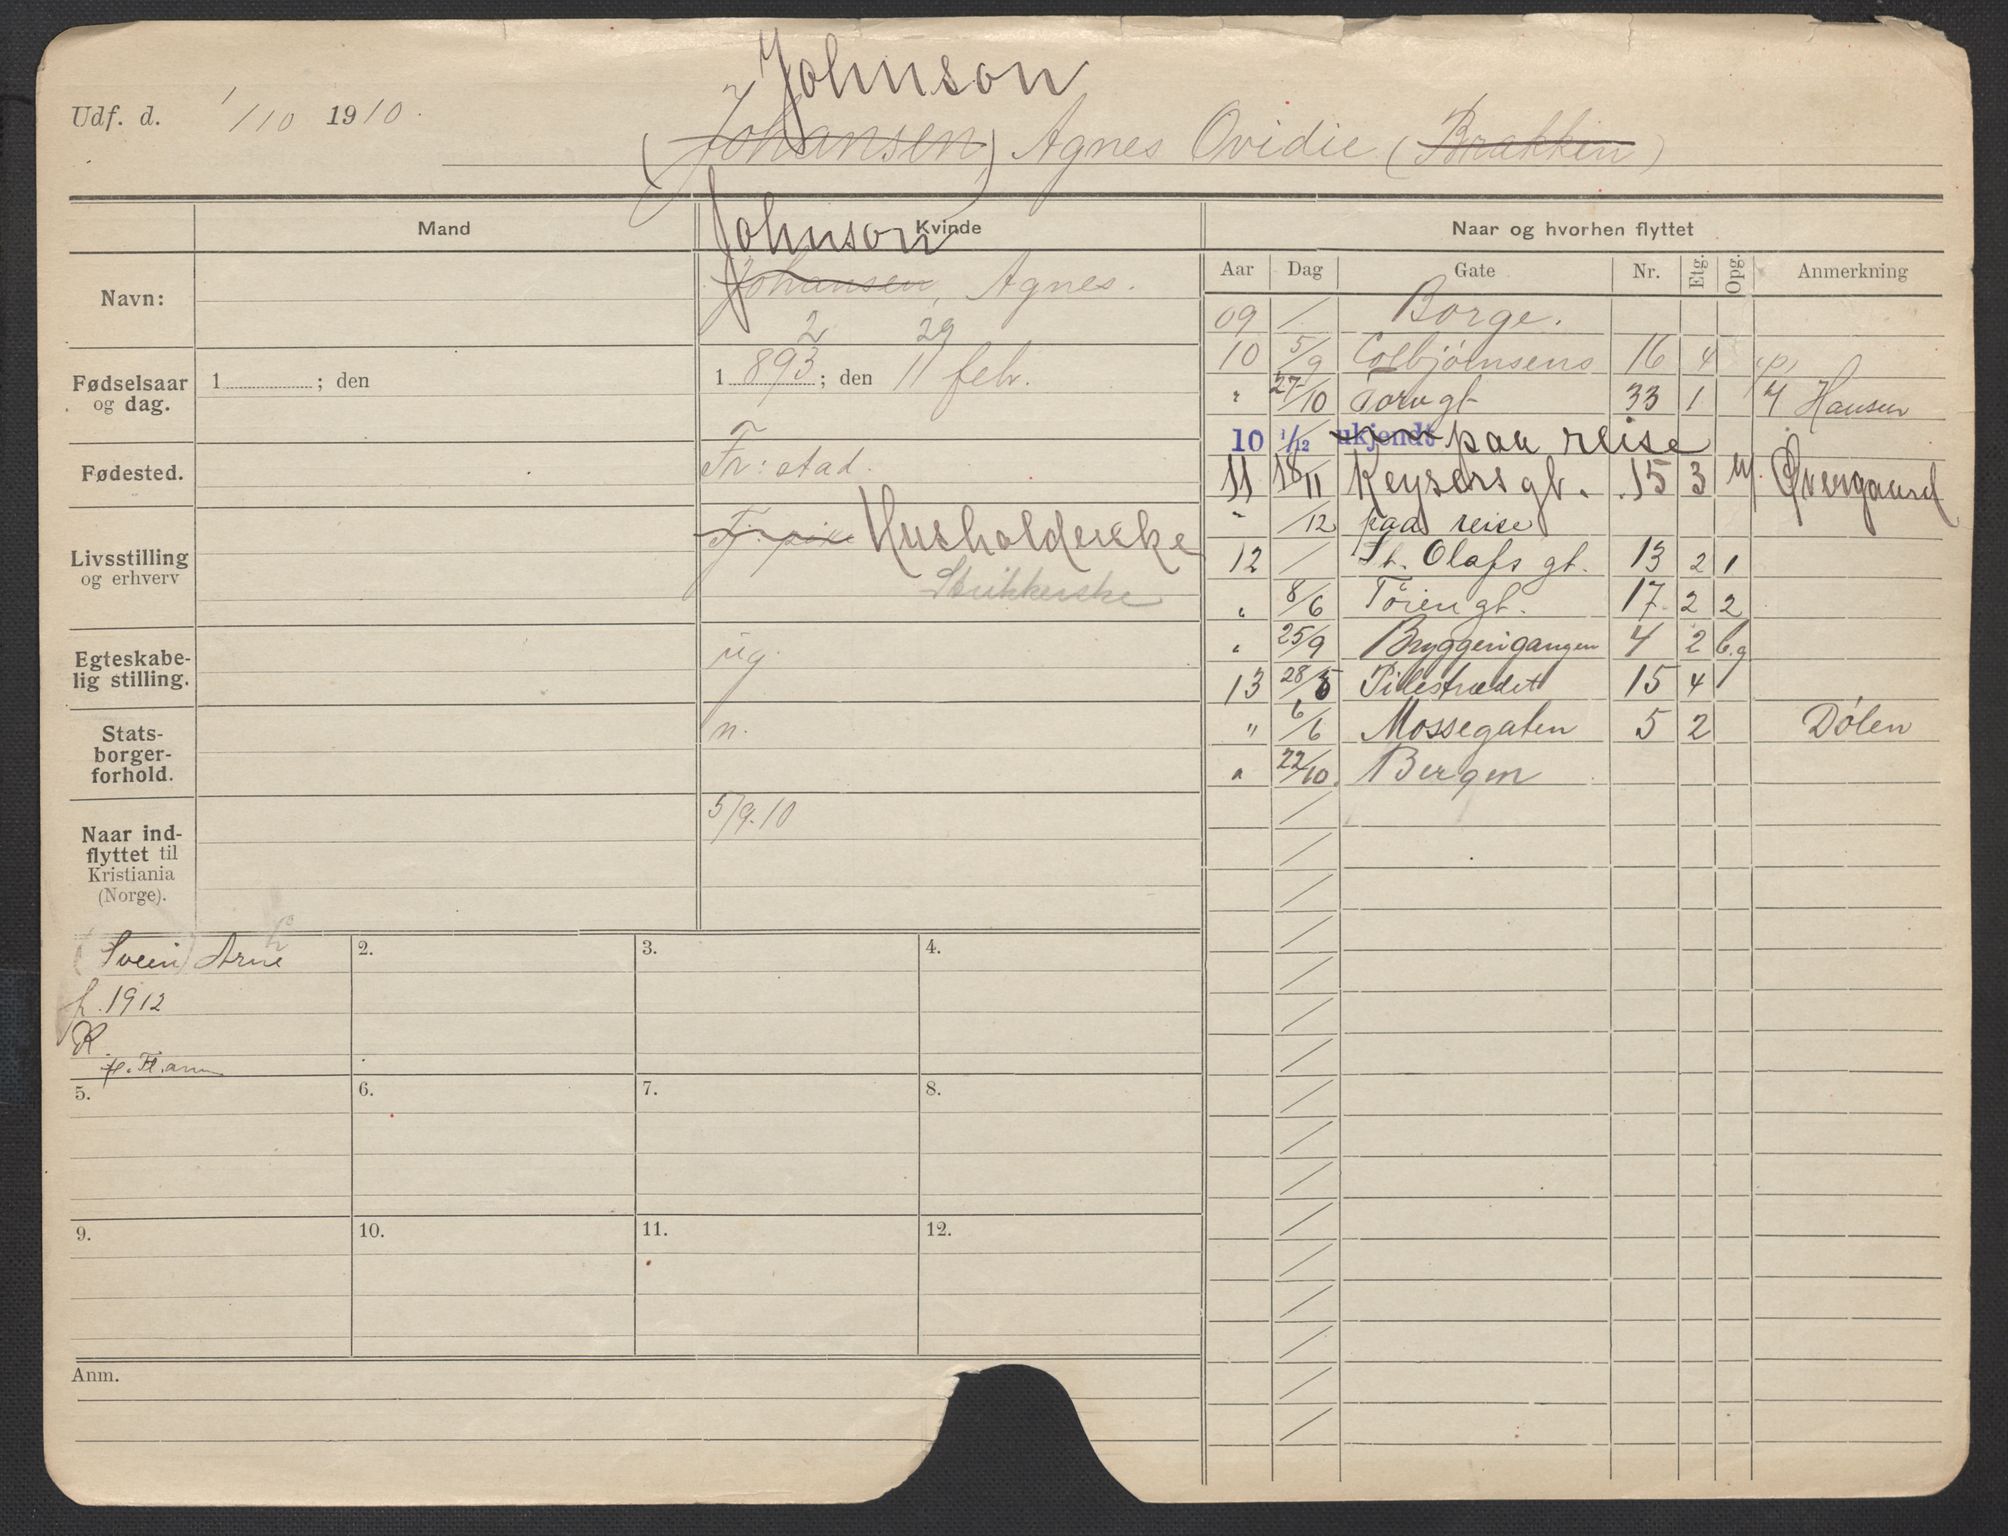 Johnson
Udf. d. 1/10 1910.
(Johansen) Agnes Ovidie (Brakkin)
Mand
Kvinde
Naar og hvorhen flyttet
Johnson
Navn:
Johansen, Agnes.
Aar Dag Gate Nr. Etg. Opg. Anmerkning
09 / Borge.
10 5/9 Colbjørnsens 16 4 (p)
" 27/10 Torvgt 33 1 Hansen
10 1/12 ukjendt paa reise
11 18/11 Keysers gt. 15 3 Øvergaard
" /12 paa reise
12 / St. Olafs gt. 13 2 1
" 8/6 Tøiengt. 17 2 2
" 25/9 Bryggerigangen 4 2 b.g
13 28/5 Pilestrædet 15 4 1
" 6/6 Mossegaten 5 2 Dølen
" 22/10. Bergen
Fødselsaar og dag.
1 ; den
2 29
1 893 ; den 11 febr.
Fødested.
Fr:stad.
Livsstilling og erhverv
Tj.pike Husholderske
Strikkerske
Egteskabe-
lig stilling.
ug.
Stats-
borger-
forhold.
n.
Naar ind-
flyttet til
Kristiania
(Norge).
5/9.10
(Svein) Arne 2. 3. 4.
f. 1912
K
5. 6. 7. 8.
9. 10. 11. 12.
Anm.